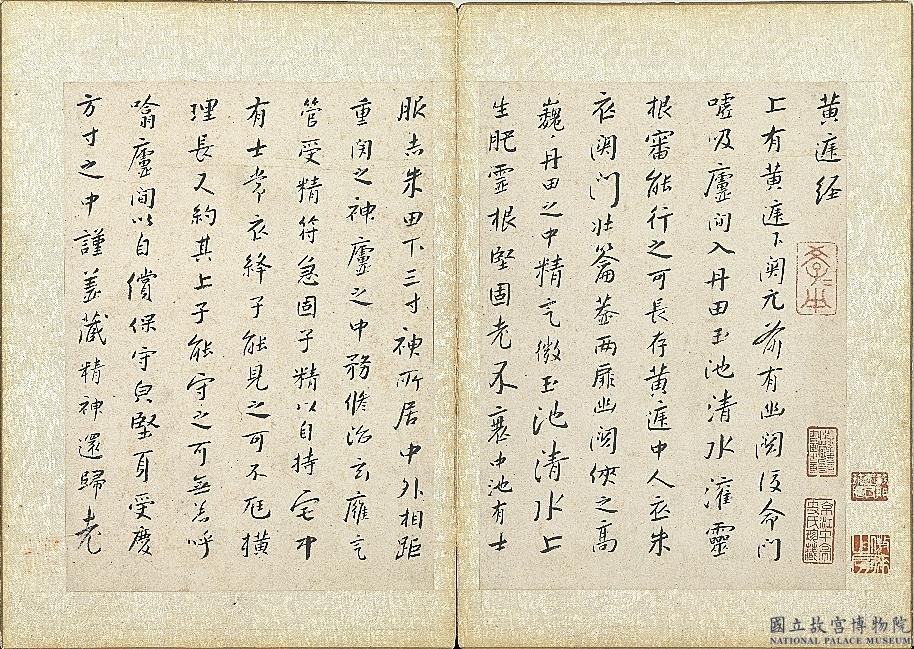 黄庭经
上有黄庭下關元前有幽闕後命門
嘘吸廬間入丹田玉池清水灌靈
根審能行之可長存黄庭中人衣朱
衣関門壯籥蓋兩扉幽闕俠之高
巍巍丹田之中精气微玉池清水上
生肥靈根堅固老不衰中池有士
服赤朱田下三寸神所居中外相距
重閉之神廬之中務脩治玄廱气
管受精符急固子精以自持宅中
有士常衣絳子能見之可不厄横
理長尺約其上子能守之可無恙呼
噏廬間以自償保守貞堅身受慶
方寸之中謹蓋藏精神還歸老
國立故宮博物院
NATIONAL PALACE MUSEUM